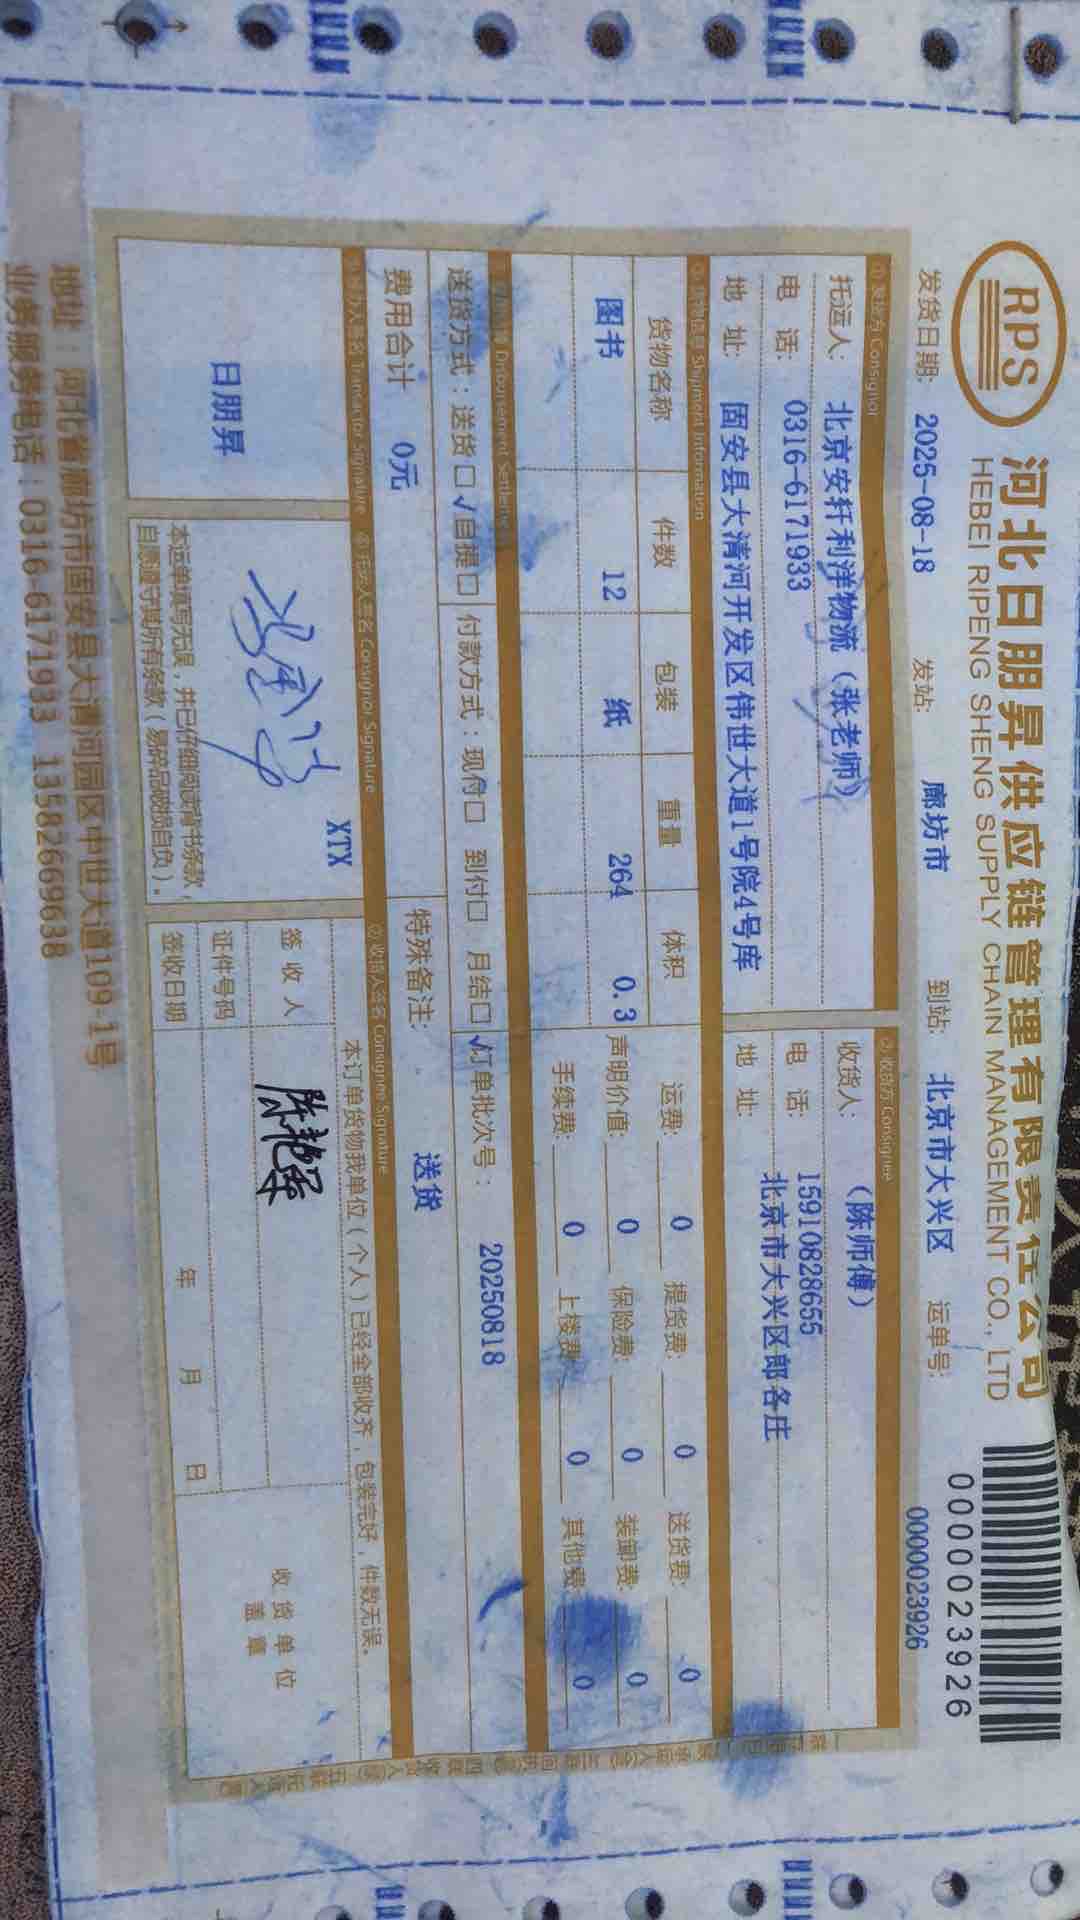 RPS
河北日朋昇供应链管理有限责任公司
HEBEI RIPENG SHENG SUPPLY CHAIN MANAGEMENT CO., LTD
0000023926
发货日期: 2025-08-18 发站: 廊坊市 到站: 北京市大兴区 运单号: 0000023926
① 发货方 Consignor
托运人: 北京安轩利洋物流（张老师）
电 话: 0316-6171933
地 址: 固安县大清河开发区伟世大道1号院4号库
② 收货方 Consignee
收货人: （陈师傅）
电 话: 15910828655
地 址: 北京市大兴区郎各庄
Shipment Information
货物名称 件数 包装 重量 体积
图书 12 纸 264 0.3
运费: 0 提货费: 0 送货费: 0
声明价值: 0 保险费: 0 装卸费: 0
手续费: 0 上楼费: 0 其他费: 0
Disbursement Settlement
送货方式：送货□ √自提□ 付款方式：现付□ 到付□ 月结□ √订单批次号： 20250818
费用合计 0元 特殊备注: 送货
Transactor Signature
日朋昇
托运人签名 Consignor Signature
XTX
本运单填写无误，并已仔细阅读背书条款，
自愿遵守其所有条款（易碎品破损自负）。
收货人签名 Consignee Signature
本订单货物我单位（个人）已经全部收齐，包装完好，件数无误。
签 收 人
证件号码
签收日期 年 月 日
收货单位
盖章
地址：河北省廊坊市固安县大清河园区中世大道109-1号
业务服务电话：0316-6171933 13582669638